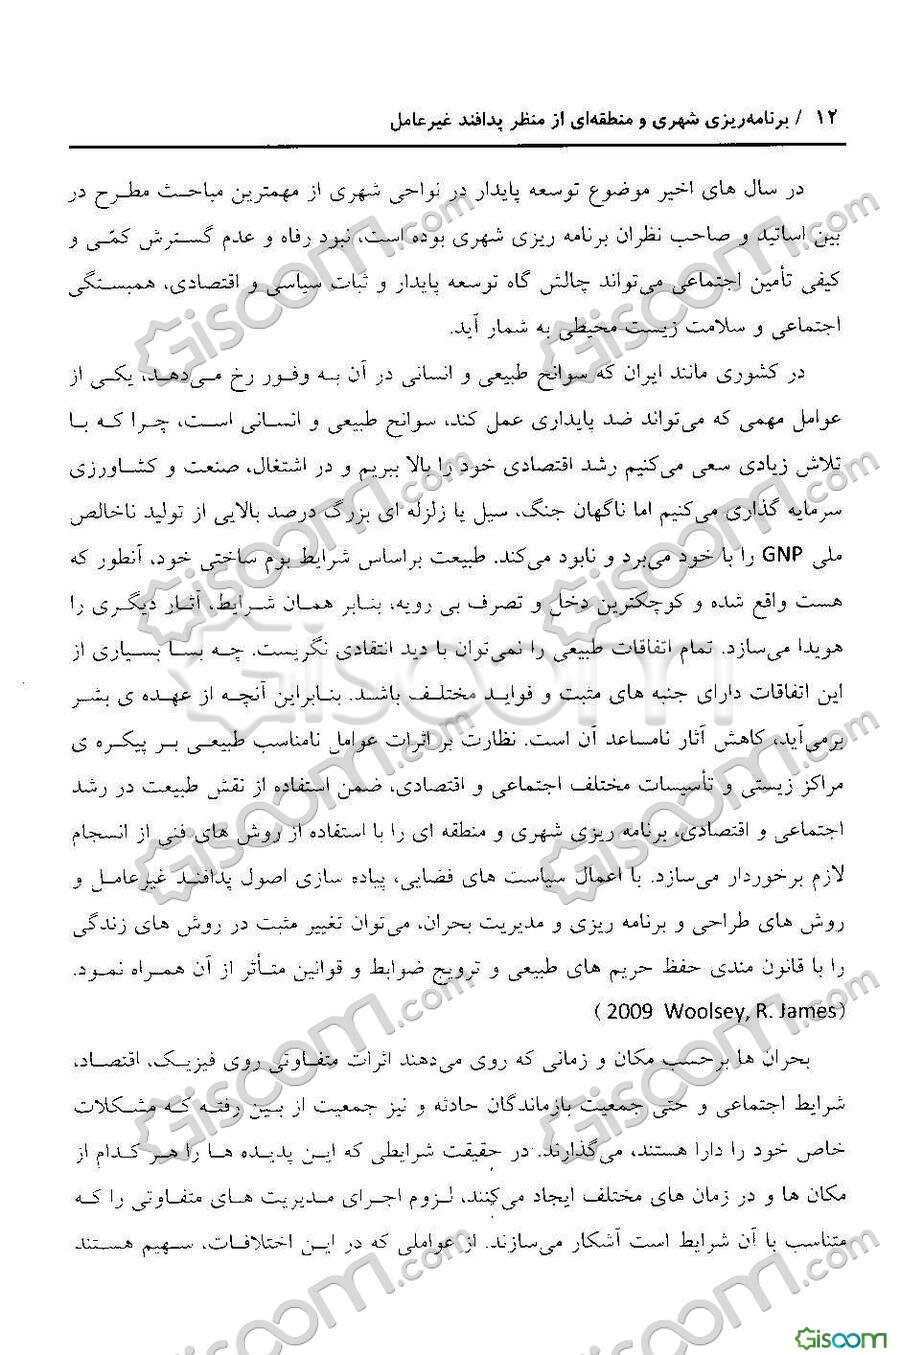 ۱۲ / برنامه‌ریزی شهری و منطقه‌ای از منظر پدافند غیرعامل
در سال های اخیر موضوع توسعه پایدار در نواحی شهری از مهمترین مباحث مطرح در
بین اساتید و صاحب نظران برنامه ریزی شهری بوده است، نبود رفاه و عدم گسترش کمّی و
کیفی تأمین اجتماعی می‌تواند چالش گاه توسعه پایدار و ثبات سیاسی و اقتصادی، همبستگی
اجتماعی و سلامت زیست محیطی به شمار آید.
در کشوری مانند ایران که سوانح طبیعی و انسانی در آن به وفور رخ می‌دهد، یکی از
عوامل مهمی که می‌تواند ضد پایداری عمل کند، سوانح طبیعی و انسانی است، چرا که با
تلاش زیادی سعی می‌کنیم رشد اقتصادی خود را بالا ببریم و در اشتغال، صنعت و کشاورزی
سرمایه گذاری می‌کنیم اما ناگهان جنگ، سیل یا زلزله ای بزرگ درصد بالایی از تولید ناخالص
ملی GNP را با خود می‌برد و نابود می‌کند. طبیعت براساس شرایط بوم ساختی خود، آنطور که
هست واقع شده و کوچکترین دخل و تصرف بی رویه، بنابر همان شرایط، آثار دیگری را
هویدا می‌سازد. تمام اتفاقات طبیعی را نمی‌توان با دید انتقادی نگریست. چه بسا بسیاری از
این اتفاقات دارای جنبه های مثبت و فواید مختلف باشد. بنابراین آنچه از عهده ی بشر
برمی‌آید، کاهش آثار نامساعد آن است. نظارت بر اثرات عوامل نامناسب طبیعی بر پیکره ی
مراکز زیستی و تأسیسات مختلف اجتماعی و اقتصادی، ضمن استفاده از نقش طبیعت در رشد
اجتماعی و اقتصادی، برنامه ریزی شهری و منطقه ای را با استفاده از روش های فنی از انسجام
لازم برخوردار می‌سازد. با اعمال سیاست های فضایی، پیاده سازی اصول پدافند غیرعامل و
روش های طراحی و برنامه ریزی و مدیریت بحران، می‌توان تغییر مثبت در روش های زندگی
را با قانون مندی حفظ حریم های طبیعی و ترویج ضوابط و قوانین متأثر از آن همراه نمود.
(2009 Woolsey, R. James)
بحران ها برحسب مکان و زمانی که روی می‌دهند اثرات متفاوتی روی فیزیک، اقتصاد،
شرایط اجتماعی و حتی جمعیت بازماندگان حادثه و نیز جمعیت از بین رفته که مشکلات
خاص خود را دارا هستند، می‌گذارند. در حقیقت شرایطی که این پدیده ها را هر کدام از
مکان ها و در زمان های مختلف ایجاد می‌کنند، لزوم اجرای مدیریت های متفاوتی را که
متناسب با آن شرایط است آشکار می‌سازند. از عواملی که در این اختلافات، سهیم هستند
Giscom.com
Giscom.com
Giscom.com
Giscom.com
Giscom
Giscom.com
Giscom.com
Giscom.com
Giscom.com
Giscom.com
Giscom.com
Giscom